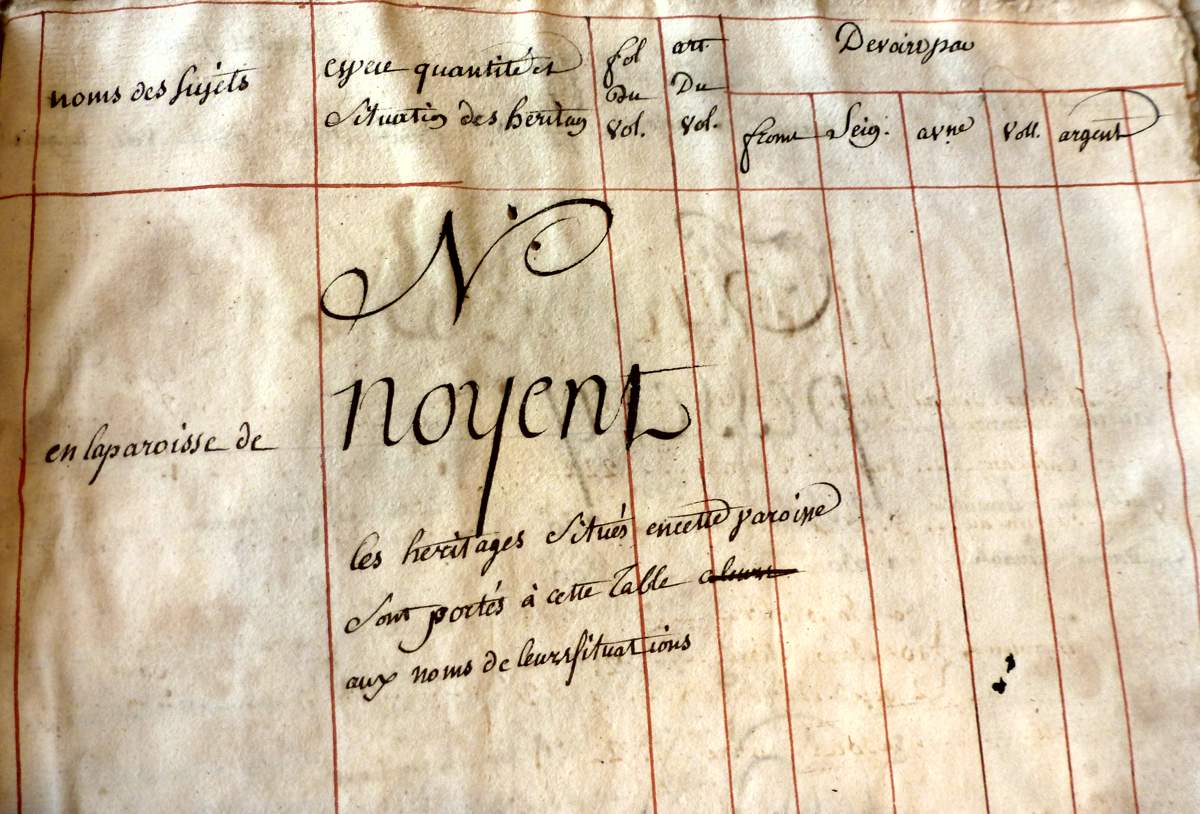 noms des sujets
espece quantité et
situation des heritag
fol
du
vol.
art.
Du
vol.
Devoirs par
from
Seig:
avne
voll.
argent
N
en la paroisse de
noyent
les heritages situés en cette paroisse
sont portés à cette table
aux noms de leurs situations